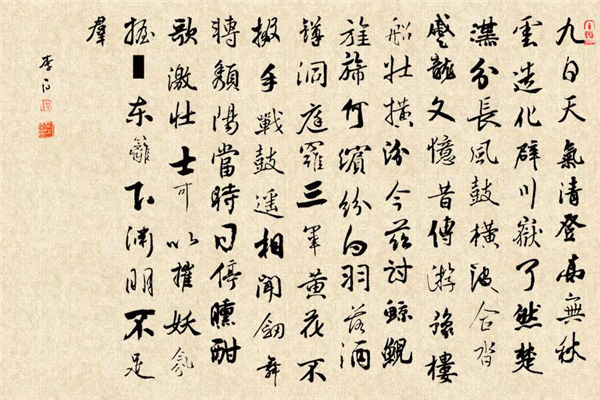 九日天氣清登高無秋
雲造化辟川嶽了然楚
漢分長風鼓橫波合沓
蹙龍文憶昔傳遊豫樓
船壯橫汾今茲討鯨鯢
旌旆何繽紛白羽落酒
罇洞庭羅三軍黃花不
掇手戰鼓遙相聞劍舞
轉頹陽當時日停曛酣
歌激壯士可以摧妖氛
握東籬下淵明不足
羣
李白